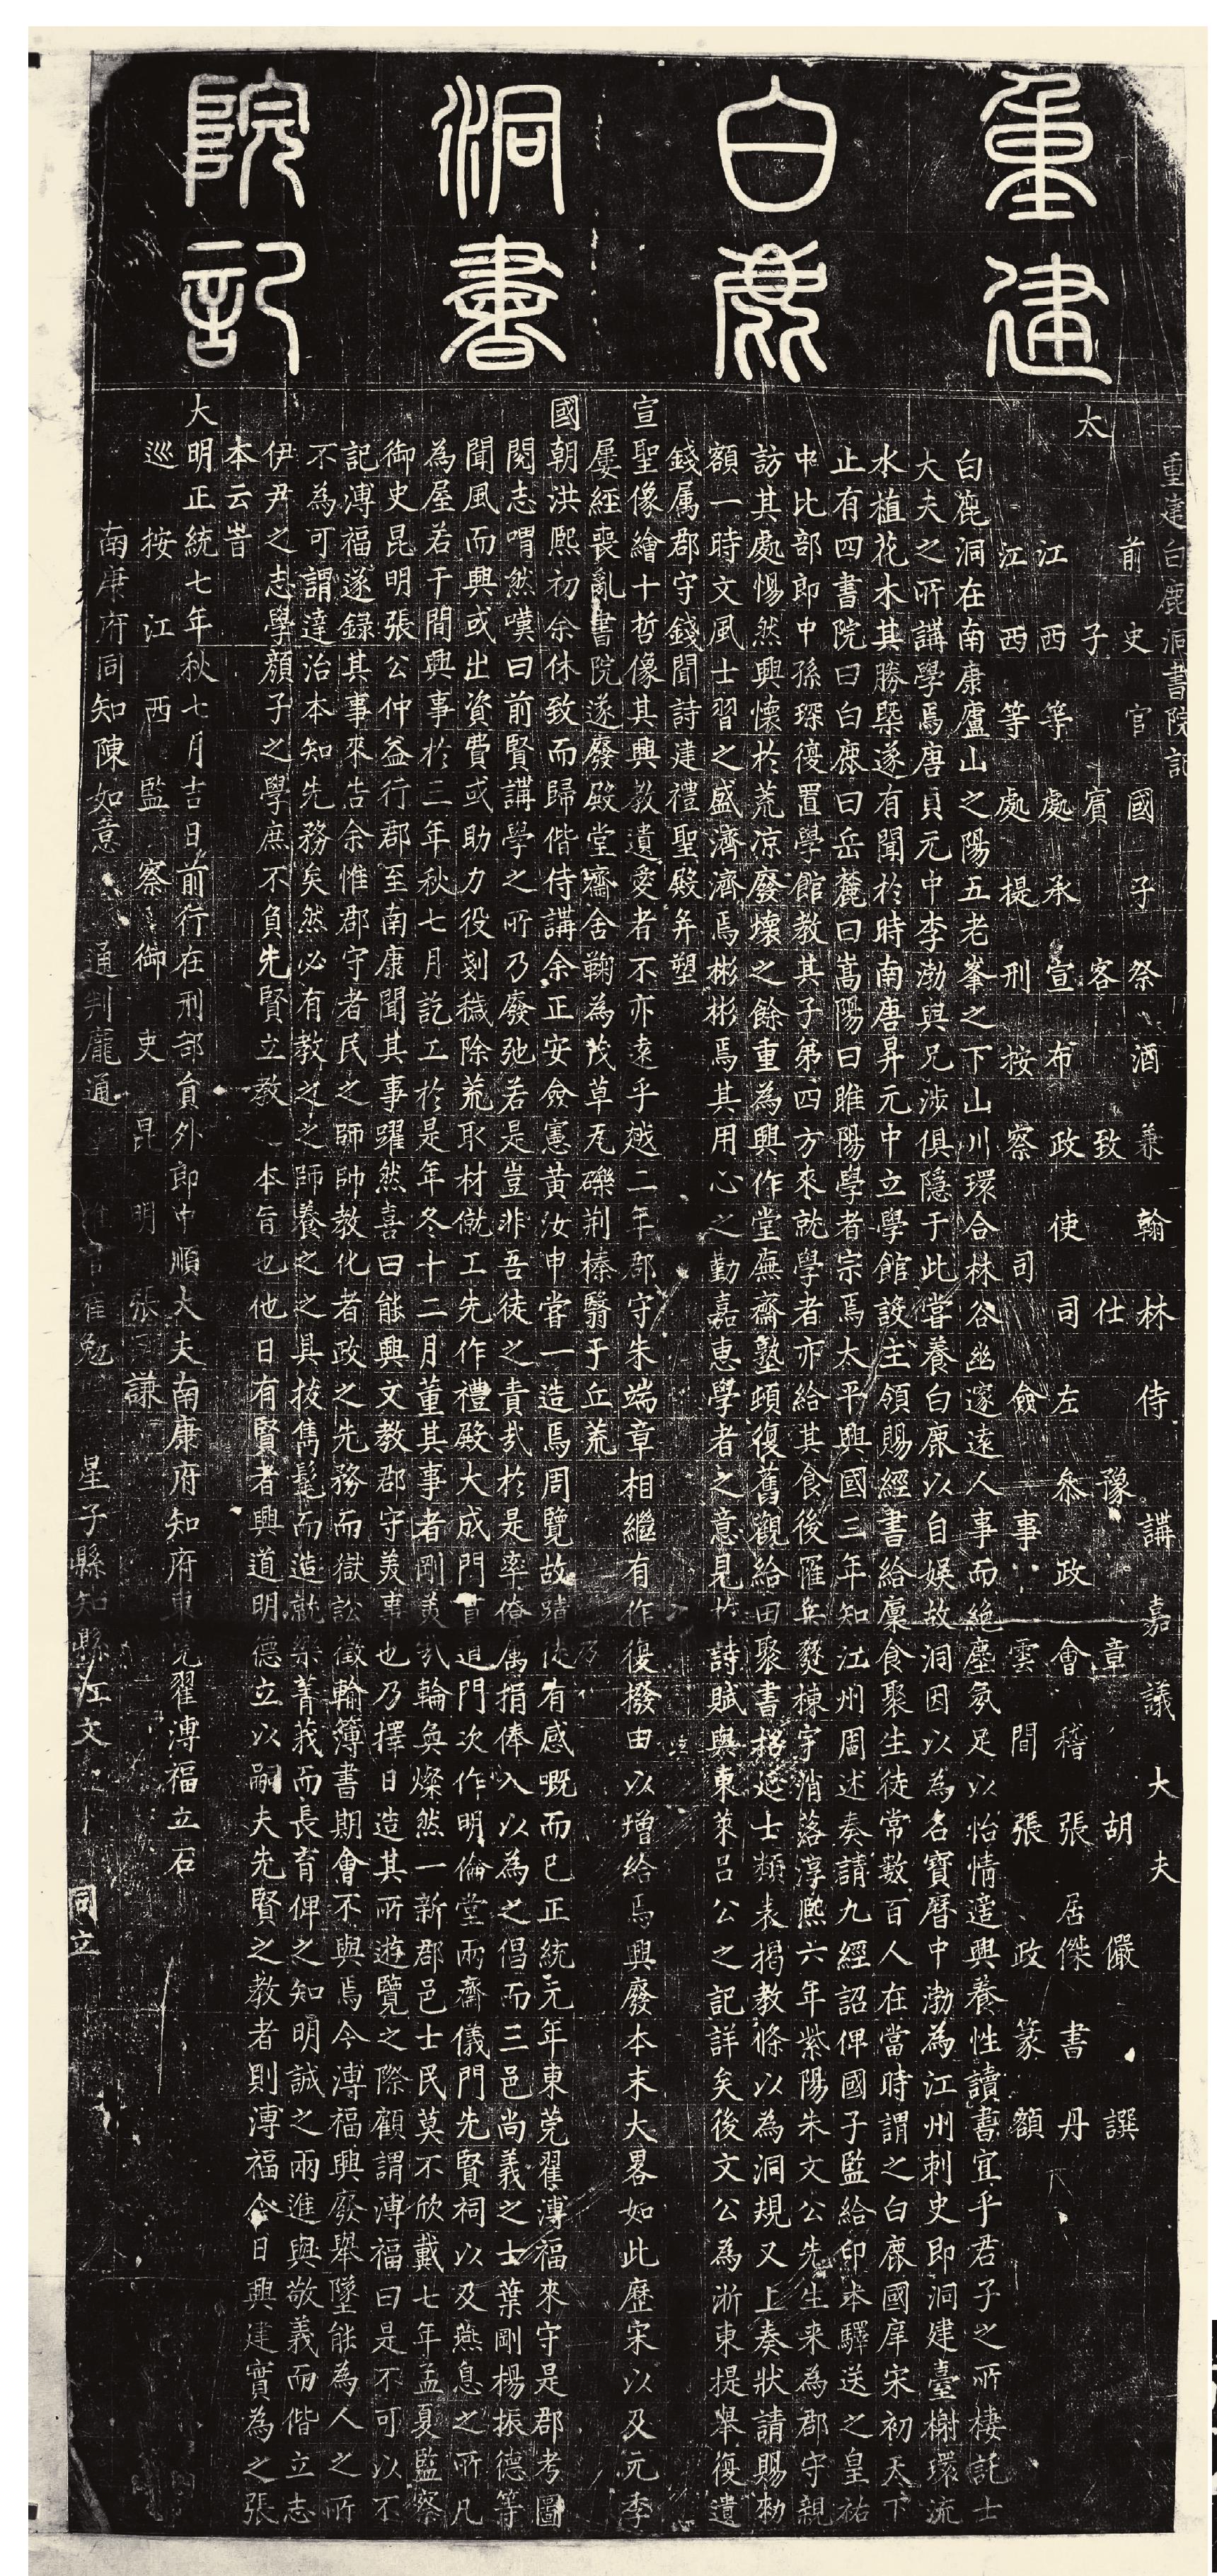 重建
白鹿
洞書
院記
重建白鹿洞書院記
前史官國子祭酒兼翰林侍講嘉議大夫
太子賓客致仕豫章胡儼譔
江西等處承宣布政使司左叅政會稽張居傑書丹
江西等處提刑按察司僉事雲間張政篆額
白鹿洞在南康廬山之陽五老峯之下山川環合林谷幽邃遠人事而絶塵氛足以怡情遣興養性讀書宜乎君子之所棲託士
大夫之所講學焉唐貞元中李渤與兄涉俱隱于此嘗養白鹿以自娱故洞因以為名寶曆中渤為江州刺史即洞建臺榭環流
水植花木其勝槩遂有聞於時南唐昇元中立學館設主領賜經書給廩食聚生徒常數百人在當時謂之白鹿國庠宋初天下
止有四書院曰白鹿曰岳麓曰嵩陽曰睢陽學者宗焉太平興國三年知江州周述奏請九經詔俾國子監給印本驛送之皇祐
中比部郎中孫琛復置學館教其子弟四方來就學者亦給其食後罹兵燹棟宇消落淳熙六年紫陽朱文公先生来為郡守親
訪其處惕然興懷於荒凉廢壞之餘重為興作堂廡齋塾頓復舊觀給田聚書招延士類表揭教條以為洞規又上奏狀請賜勑
額一時文風士習之盛濟濟焉彬彬焉其用心之勤嘉惠學者之意見於詩賦與東萊吕公之記詳矣後文公為浙東提舉復遺
錢属郡守錢聞詩建禮聖殿并塑
宣聖像繪十哲像其興教遺愛者不亦遠乎越二年郡守朱端章相繼有作復撥田以增給焉興廢本末大畧如此歷宋以及元季
屢經喪亂書院遂廢殿堂齋舍鞠為茂草瓦礫荆榛翳于丘荒
國朝洪熙初余休致而歸偕侍講余正安僉憲黄汝申嘗一造焉周覽故蹟徒有感嘅而已正統元年東莞翟溥福來守是郡考圖
閱志喟然嘆曰前賢講學之所乃廢弛若是豈非吾徒之責㢤於是率僚属捐俸入以為之倡而三邑尚義之士葉剛楊振德等
聞風而興或出資費或助力役剗穢除荒取材僦工先作禮殿大成門貫道門次作明倫堂兩齋儀門先賢祠以及燕息之所凡
為屋若干間興事於三年秋七月訖工於是年冬十二月董其事者剛㳟㢤輪奐燦然一新郡邑士民莫不欣戴七年孟夏監察
御史昆明張公仲益行郡至南康聞其事躍然喜曰能興文教郡守美事也乃擇日造其所遊覽之際顧謂溥福曰是不可以不
記溥福遂錄其事來告余惟郡守者民之師帥教化者政之先務而獄訟徵輸簿書期會不與焉今溥福興廢舉墜能為人之所
不為可謂達治本知先務矣然必有教之之師養之之具拔雋髦而造就樂菁莪而長育俾之知明誠之兩進與敬義而偕立志
伊尹之志學顔子之學庶不負先賢立教之本旨也他日有賢者興道明德立以嗣夫先賢之教者則溥福今日興建實為之張
本云旹
大明正統七年秋七月吉日前行在刑部貟外郎中順大夫南康府知府東莞翟溥福立石
巡按江西監察御史昆明張謙
南康府同知陳如意 通判龐通 推官崔勉 星子縣知縣江文 同立